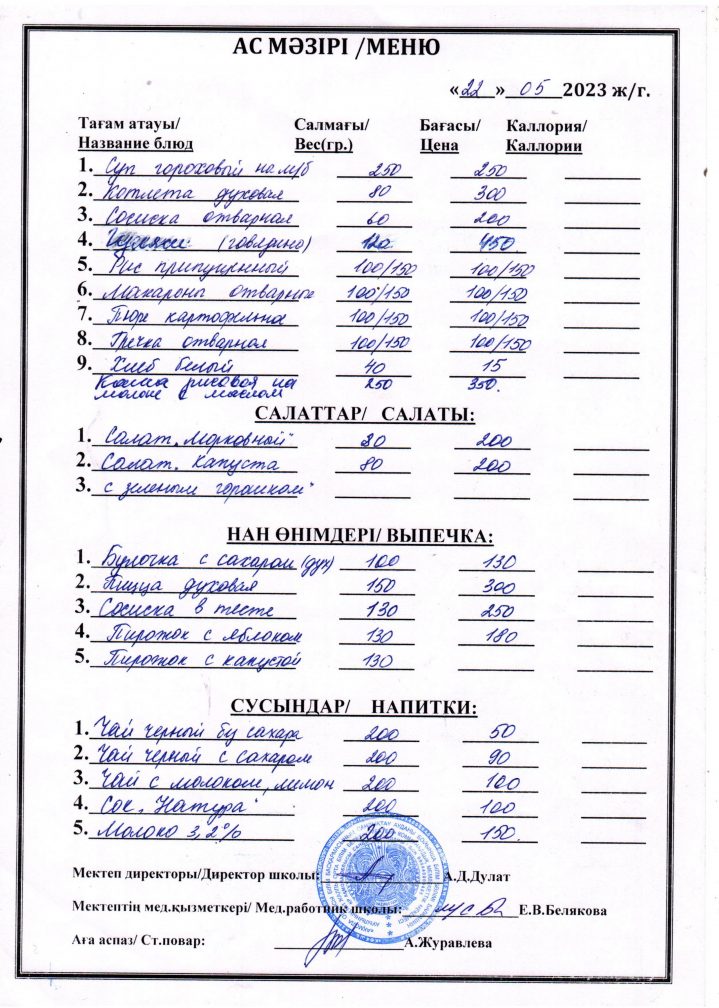 АС МӘЗІРІ /МЕНЮ
«22» 05 2023 ж/г.
Тағам атауы/ Салмағы/ Бағасы/ Каллория/
Название блюд Вес(гр.) Цена Каллории
1. Суп гороховый на м/б 250 250
2. Котлета духовая 80 300
3. Сосиска отварная 60 200
4. (говядина) 120 450
5. Рис припущенный 100/150 100/150
6. Макароны отварные 100/150 100/150
7. Пюре картофельное 100/150 100/150
8. Гречка отварная 100/150 100/150
9. Хлеб белый 40 15
Каша рисовая на 250 350.
молоке с маслом
САЛАТТАР/ САЛАТЫ:
1. Салат „Морковный" 80 200
2. Салат. Капуста 80 200
3. с зеленым горошком"
НАН ӨНІМДЕРІ/ ВЫПЕЧКА:
1. Булочка с сахаром (дух) 100 130
2. Пицца духовая 150 300
3. Сосиска в тесте 130 250
4. Пирожок с яблоком 130 180
5. Пирожок с капустой 130
СУСЫНДАР/ НАПИТКИ:
1. Чай черный без сахара 200 50
2. Чай черный с сахаром 200 90
3. Чай с молоком, лимон 200 100
4. Сок „Натура" 200 100
5. Молоко 3,2% 200 150.
Мектеп директоры/Директор школы: А.Д.Дулат
Мектептің мед.қызметкері/ Мед.работник школы: Е.В.Белякова
Аға аспаз/ Ст.повар: А.Журавлева